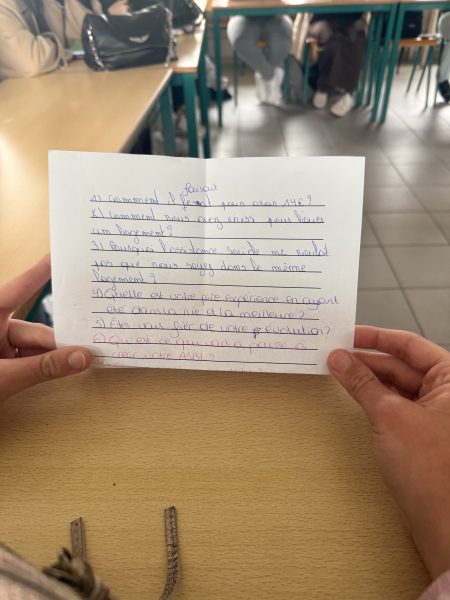 faisait
1) Comment pour avoir 14€ ?
2) Comment vous avez réussi pour l'avoir
un logement ?
3) Pourquoi l'assistance sociale ne voulait
pas que vous soyez dans le même
logement ?
4) Quelle est votre pire expérience en ayant
été dans la rue et la meilleure ?
5) Êtes vous fier de votre évolution ?
6) Qu'est ce qui vous a poussé à
créer votre ASBL ?